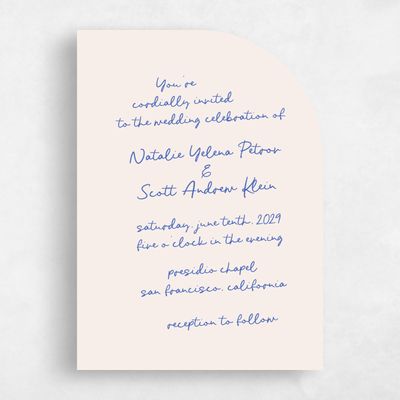 You're
cordially invited
to the wedding celebration of
Natalie Yelena Petrov
&
Scott Andrew Klein
saturday, june tenth, 2029
five o'clock in the evening
presidio chapel
san francisco, california
reception to follow